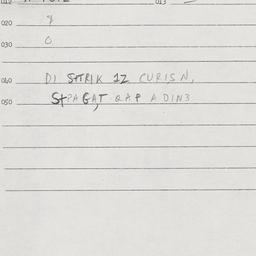 012
013
020 8
030 0
040 DI STRIK 12 CURISN,
050 STPAGAT QAP ADIN3